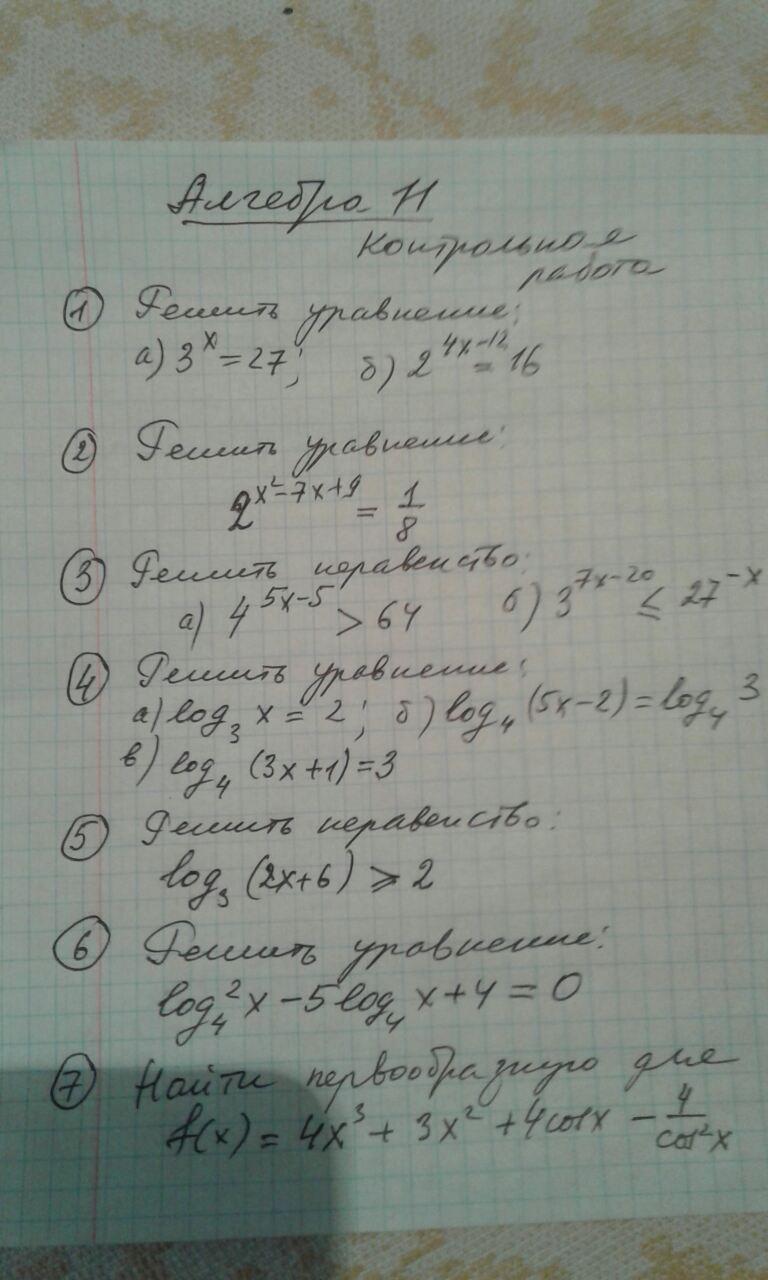 Алгебра 11
Контрольная
работа
① Решить уравнение:
а) 3^x = 27; б) 2^{4x-12} = 16
② Решить уравнение:
2^{x²-7x+9} = 1/8
③ Решить неравенство:
а) 4^{5x-5} > 64 б) 3^{7x-20} ≤ 27^{-x}
④ Решить уравнение:
а) log₃ x = 2; б) log₄ (5x-2) = log₄ 3
в) log₄ (3x+1) = 3
⑤ Решить неравенство:
log₃ (2x+6) ⩾ 2
⑥ Решить уравнение:
log₄² x - 5 log₄ x + 4 = 0
⑦ Найти первообразную для
f(x) = 4x³ + 3x² + 4cosx - 4/cos²x